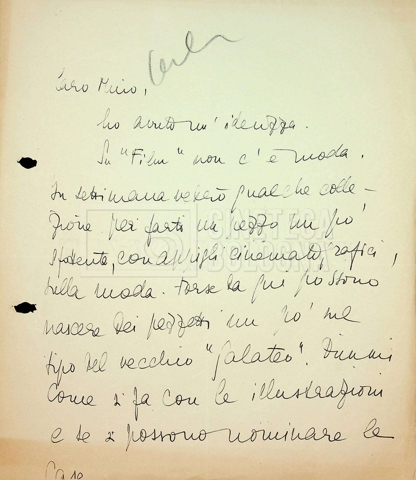 Caro Mino,
ho avuto un' ideuzza.
Su "Film" non c'è moda.
In settimana vedrò qualche colle-
zione per farti un pezzo un po'
spottente, con consigli cinematografici,
sulla moda. Forse da qui possono
nascere dei pezzetti un po' sul
tipo del vecchio "Galateo". Dimmi
come si fa con le illustrazioni
e se si possono nominare le
Case